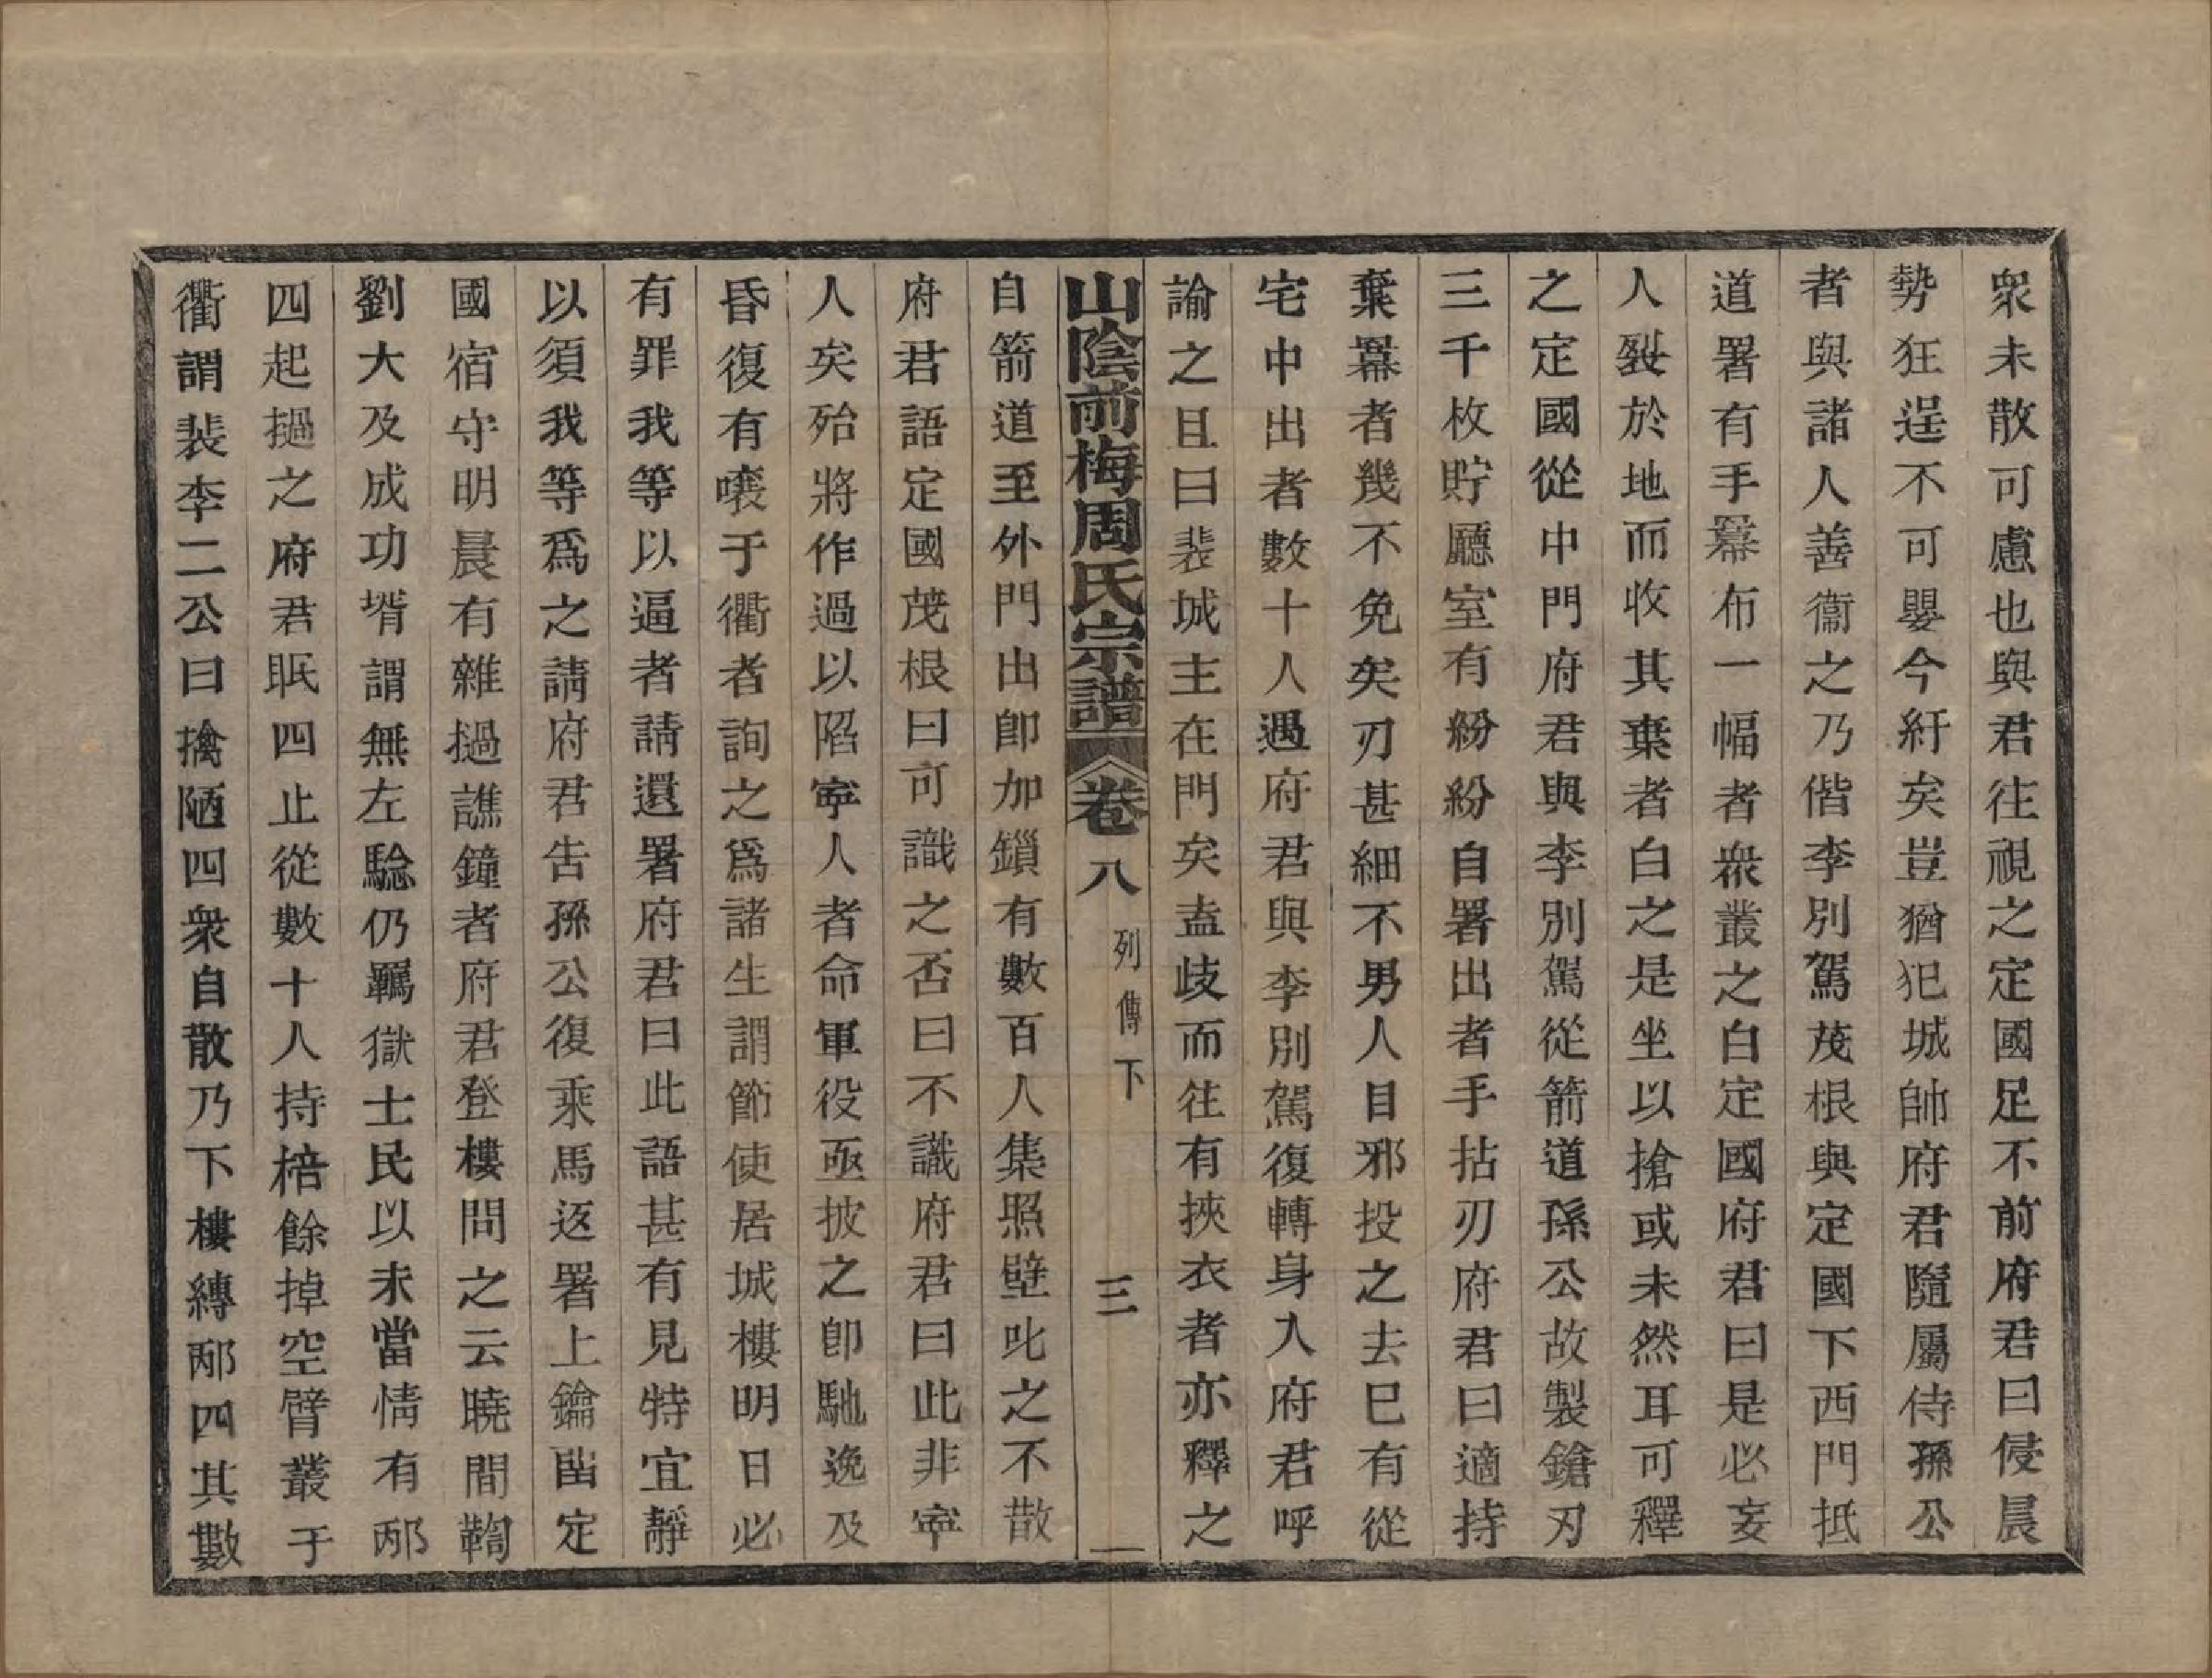 衆未散可慮也與君往視之定國足不前府君曰侵晨
勢狂逞不可嬰今紆矣豈猶犯城帥府君隨屬侍孫公
者與諸人善衞之乃偕李別駕茂根與定國下西門抵
道署有手幕布一幅者衆叢之白定國府君曰是必妄
人裂於地而收其棄者白之是坐以搶或未然耳可釋
之定國從中門府君與李別駕從箭道孫公故製鎗刃
三千枚貯廳室有紛紛自署出者手拈刃府君曰適持
棄幕者幾不免矣刃甚細不男人目邪投之去巳有從
宅中出者數十人遇府君與李別駕復轉身入府君呼
諭之且曰裴城主在門矣盍歧而往有挾衣者亦釋之
山陰前梅周氏宗譜 卷八 列傳下 三
自箭道至外門出卽加鎖有數百人集照壁叱之不散
府君語定國茂根曰可識之否曰不識府君曰此非寧
人矣殆將作過以陷寧人者命軍役亟披之卽馳逸及
昏復有嚷于衢者詢之爲諸生謂節使居城樓明日必
有罪我等以逼者請還署府君曰此語甚有見特宜靜
以須我等爲之請府君告孫公復乘馬返署上鑰畱定
國宿守明晨有雜撾譙鐘者府君登樓問之云曉間鞫
劉大及成功壻謂無左騐仍羈獄士民以未當情有邴
四起撾之府君眡四止從數十人持棓餘掉空臂叢于
衢謂裴李二公曰擒陋四衆自散乃下樓縛邴四其數